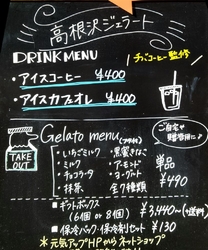 高根沢ジェラート
DRINK MENU
チャコーヒー監修
・アイスコーヒー ¥400
・アイスカフェオレ ¥400
Gelato menu (フタ付)
TAKE OUT
・いちごミルク ・黒蜜きなこ
・ミルク ・アーモンド
・チョコラータ ・ヨーグルト
・抹茶 全7種類
ご自宅
贈答用に♪
単品
¥490
■ギフトボックス
(6個 or 8個) ¥3,440〜(+送料)
■保冷バック・保冷剤セット ¥130
*元気アップHPからネットショップ